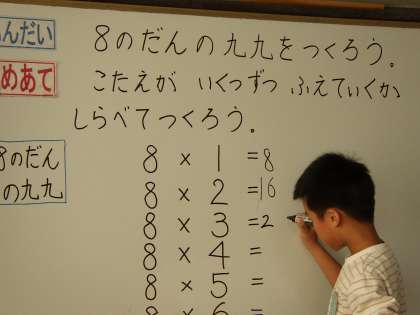 んだい
8のだんの九九をつくろう。
めあて
こたえが いくつずつ ふえていくか
しらべてつくろう。
8のだん
の九九
8 × 1 = 8
8 × 2 = 16
8 × 3 = 2
8 × 4 =
8 × 5 =
8 × 6 =